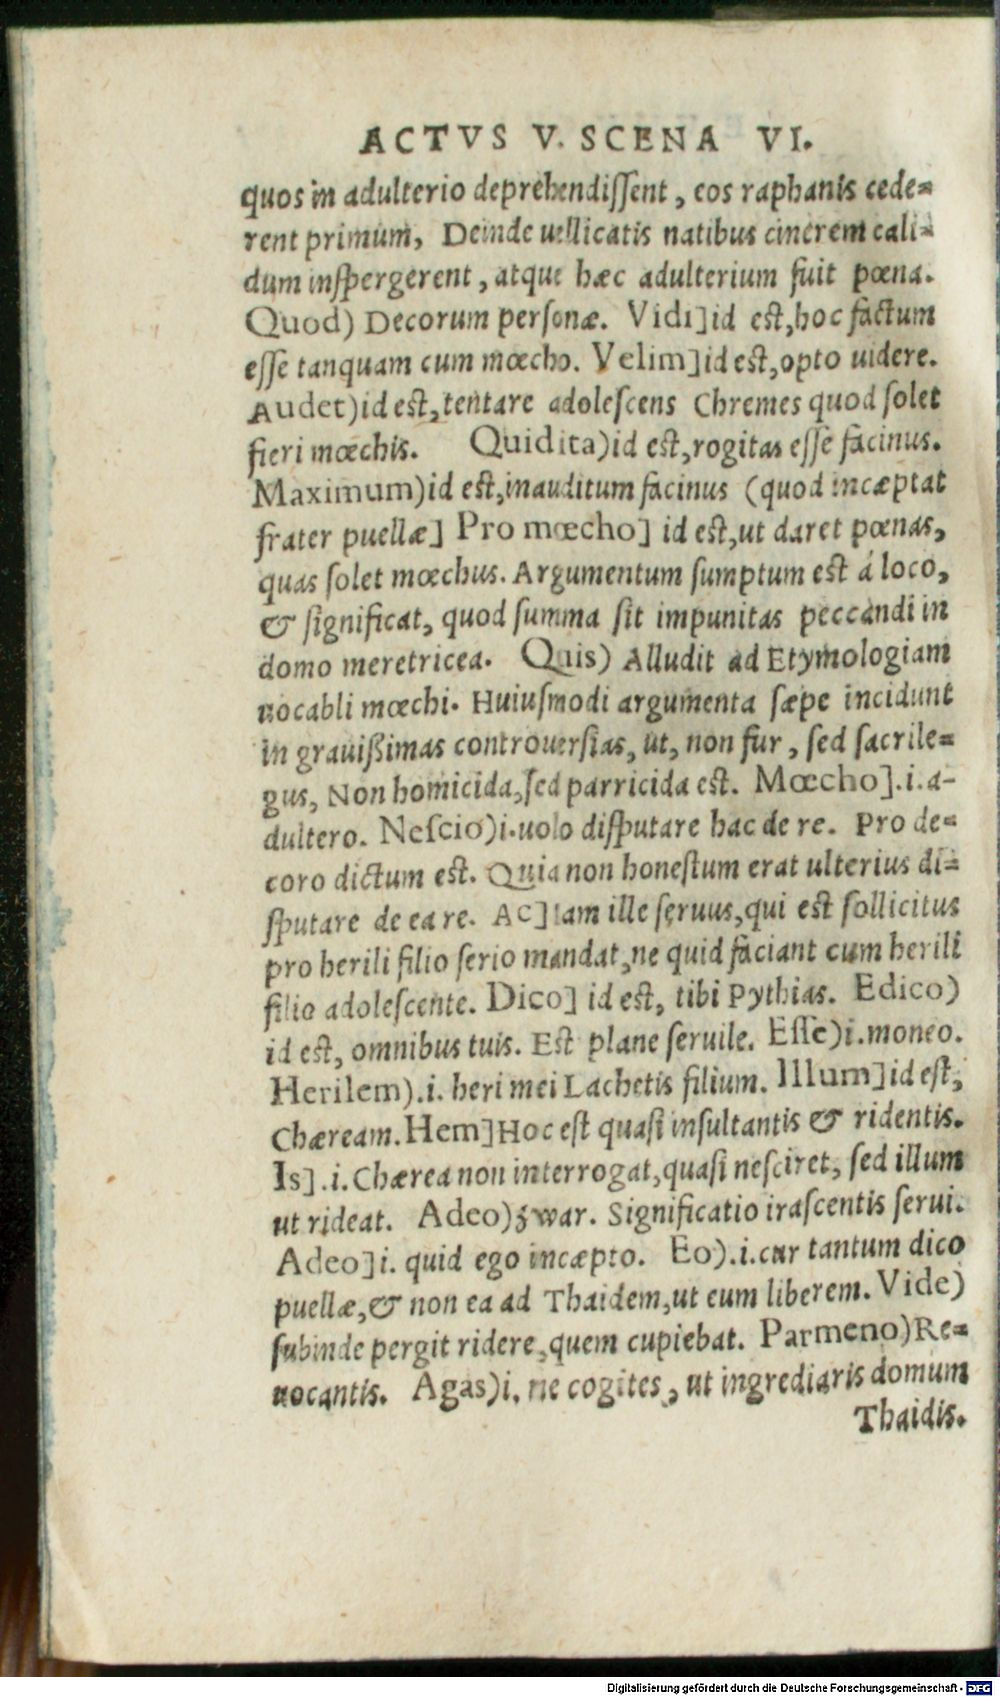 ACTVS V. SCENA VI.
quos in adulterio deprehendiſſent, eos raphanis cede=
rent primum, Deinde uellicatis natibus cinerem cali=
dum inſpergerent, atque hæc adulterium fuit pœna.
Quod) Decorum perſonæ. Vidi] id eſt, hoc factum
eſſe tanquam cum mœcho. Velim] id eſt, opto uidere.
Audet) id eſt, tentare adoleſcens Chremes quod ſolet
fieri mœchis. Quid ita) id eſt, rogitas eſſe facinus.
Maximum) id eſt, inauditum facinus (quod incæptat
frater puellæ] Pro mœcho] id eſt, ut daret pœnas,
quas ſolet mœchus. Argumentum ſumptum eſt á loco,
& ſignificat, quod ſumma ſit impunitas peccandi in
domo meretricea. Quis) Alludit ad Etymologiam
uocabli mœchi. Huiuſmodi argumenta ſæpe incidunt
in grauißimas controuerſias, ut, non fur, ſed ſacrile=
gus, Non homicida, ſed parricida eſt. Mœcho].i.a-
dultero. Neſcio)i.uolo diſputare hac de re. Pro de=
coro dictum eſt. Quia non honeſtum erat ulterius di=
ſputare de ea re. AC] Iam ille ſeruus, qui eſt ſollicitus
pro herili filio ſerio mandat, ne quid faciant cum herili
filio adoleſcente. Dico] id eſt, tibi Pythias. Edico)
id eſt, omnibus tuis. Eſt plane ſeruile. Eſſe)i.moneo.
Herilem).i. heri mei Lachetis filium. Illum] id eſt,
Chæream. Hem] Hoc eſt quaſi inſultantis & ridentis.
Is].i.Chærea non interrogat, quaſi neſciret, ſed illum
ut rideat. Adeo) zwar. Significatio iraſcentis ſerui.
Adeo]i. quid ego incæpto. Eo).i.cur tantum dico
puellæ, & non ea ad Thaidem, ut eum liberem. Vide)
ſubinde pergit ridere, quem cupiebat. Parmeno) Re=
uocantis. Agas)i. ne cogites, ut ingrediaris domum
Thaidis.
Digitalisierung gefördert durch die Deutsche Forschungsgemeinschaft - DFG